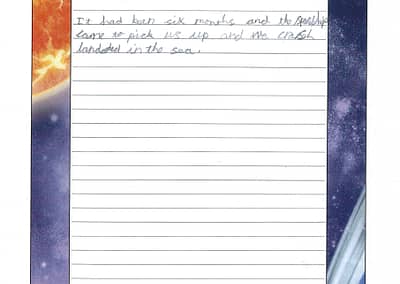 It had ben six months and the spaceship
came to pick us up and we crash
landed in the sea.